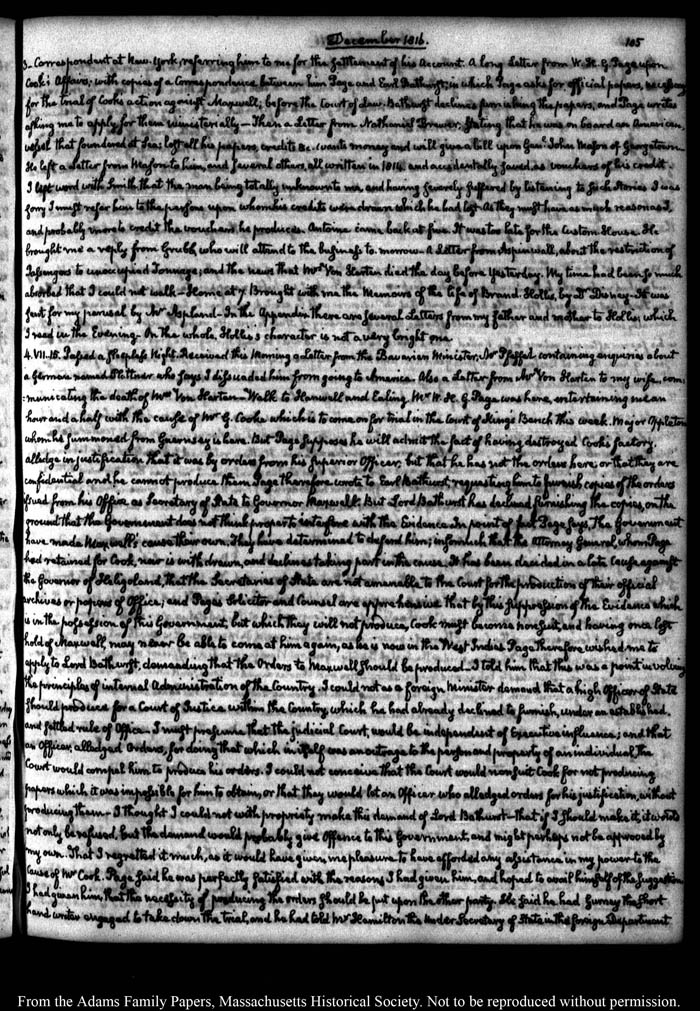 December 1816. 105
3. Correspondent at New-York, referring him to me for the settlement of his Account. A long Letter from W. H. G. Page upon
Cook's Affairs; with copies of a Correspondence between him Page and Earl Bathurst; in which Page asks for official papers, necessary
for the trial of Cook's action against Maxwell; before the Court of Law. Bathurst declines furnishing the papers, and Page writes
asking me to apply for them ministerially — Then a Letter from Nathaniel Brewer, stating that he was on board an American
vessel that foundered at Sea; lost all his papers, credits &c. wants money and will give a bill upon Genl. John Mason of Georgetown.
He left a Letter from Mason to him, and several others, all written in 1814 and accidentally saved, as vouchers of his credit.
I left word with Smith that the man being totally unknown to me, and having severely suffered by listening to such stories I was
sorry I must refer him to the persons upon whom his credits were drawn which he had lost. As they must have as much reason as I,
and probably more to credit the vouchers he produces. Antoine came back at five. It was too late for the Custom House. He
brought me a reply from Grubb who will attend to the business to-morrow. A Letter from Aspinwall, about the restriction of
Passengers to unoccupied Tonnage; and the news that Mrs. Von Harten died the day before yesterday. My time had been so much
absorbed that I could not walk — Home at 7. Brought with me the Memoirs of the life of Brand-Hollis, by Dr. Disney — It was
sent for my perusal by Mr. Aspland. In the Appendix there are several Letters from my father and mother to Hollis, which
I read in the Evening. On the whole, Hollis's character is not a very bright one.
4. VII.15. Passed a sleepless Night. Received this Morning a Letter from the Bavarian Minister, Mr. Pfeffel containing enquiries about
a German named Plittner who says I dissuaded him from going to America. Also a Letter from Mr. Von Harten to my wife, com-
:municating the death of Mrs. Von Harten — Walk to Hanwell and Ealing. Mr. W. H. G. Page was here, entertaining me an
hour and a half with the cause of Mr. G. Cooke which is to come on for trial in the Court of King's Bench this week. Major Appleton
whom he summoned from Guernsey is here. But Page supposes he will admit the fact of having destroyed Cook's factory.
alledge in justification that it was by orders from his Superior Officer, but that he has not the orders here, or that they are
confidential and he cannot produce them. Page therefore wrote to Earl Bathurst, requesting him to furnish copies of the orders
issued from his Office as Secretary of State to Governor Maxwell. But Lord Bathurst has declined furnishing the copies, on the
ground that the Government does not think proper to interfere with the Evidence. In point of fact Page says, the Government
have made Maxwell's cause their own; They have determined to defend him; insomuch that the Attorney General, whom Page
had retained for Cook, now is withdrawn, and declines taking part in the cause. It has been decided in a late Cause against
the Governor of Heligoland, that the Secretaries of State are not amenable to the Court for the production of their official
archives or papers of Office; and Page's Solicitor and Counsel are apprehensive that by this suppression of the Evidence which
is in the possession of this Government, but which they will not produce, Cook must become nonsuit, and having once lost
hold of Maxwell, may never be able to come at him again, as he is now in the West Indies. Page therefore wished me to
apply to Lord Bathurst, demanding that the Orders to Maxwell should be produced. I told him that this was a point involving
the principles of internal Administration of the Country. I could not as a foreign Minister demand that a high Officer of State
should produce for a Court of Justice within the Country, which he had already declined to furnish, under an established
and settled rule of Office. I must presume that the judicial Court, would be independent of Executive influence; and that
an Officer, alledged Orders, for doing that which in itself was an outrage to the person and property of an individual, the
Court would compel him to produce his orders. I could not conceive that the Court would nonsuit Cook for not producing
papers which it was impossible for him to obtain, or that they would let an Officer who alledged orders for his justification, without
producing them — I thought I could not with propriety make this demand of Lord Bathurst — that if I should make it, it would
not only be refused, but the demand would probably give Offence to this Government, and might perhaps not be approved by
my own. That I regretted it much, as it would have given me pleasure to have afforded any assistance in my power to the
Cause of Mr. Cook. Page said he was perfectly satisfied with the reasons I had given him, and hoped to avail himself of the suggestion
I had given him, that the necessity of producing the orders should be put upon the other party. He said he had Gurney the short
hand writer engaged to take down the trial, and he had told Mr. Hamilton the under Secretary of State in the foreign Department
From the Adams Family Papers, Massachusetts Historical Society. Not to be reproduced without permission.